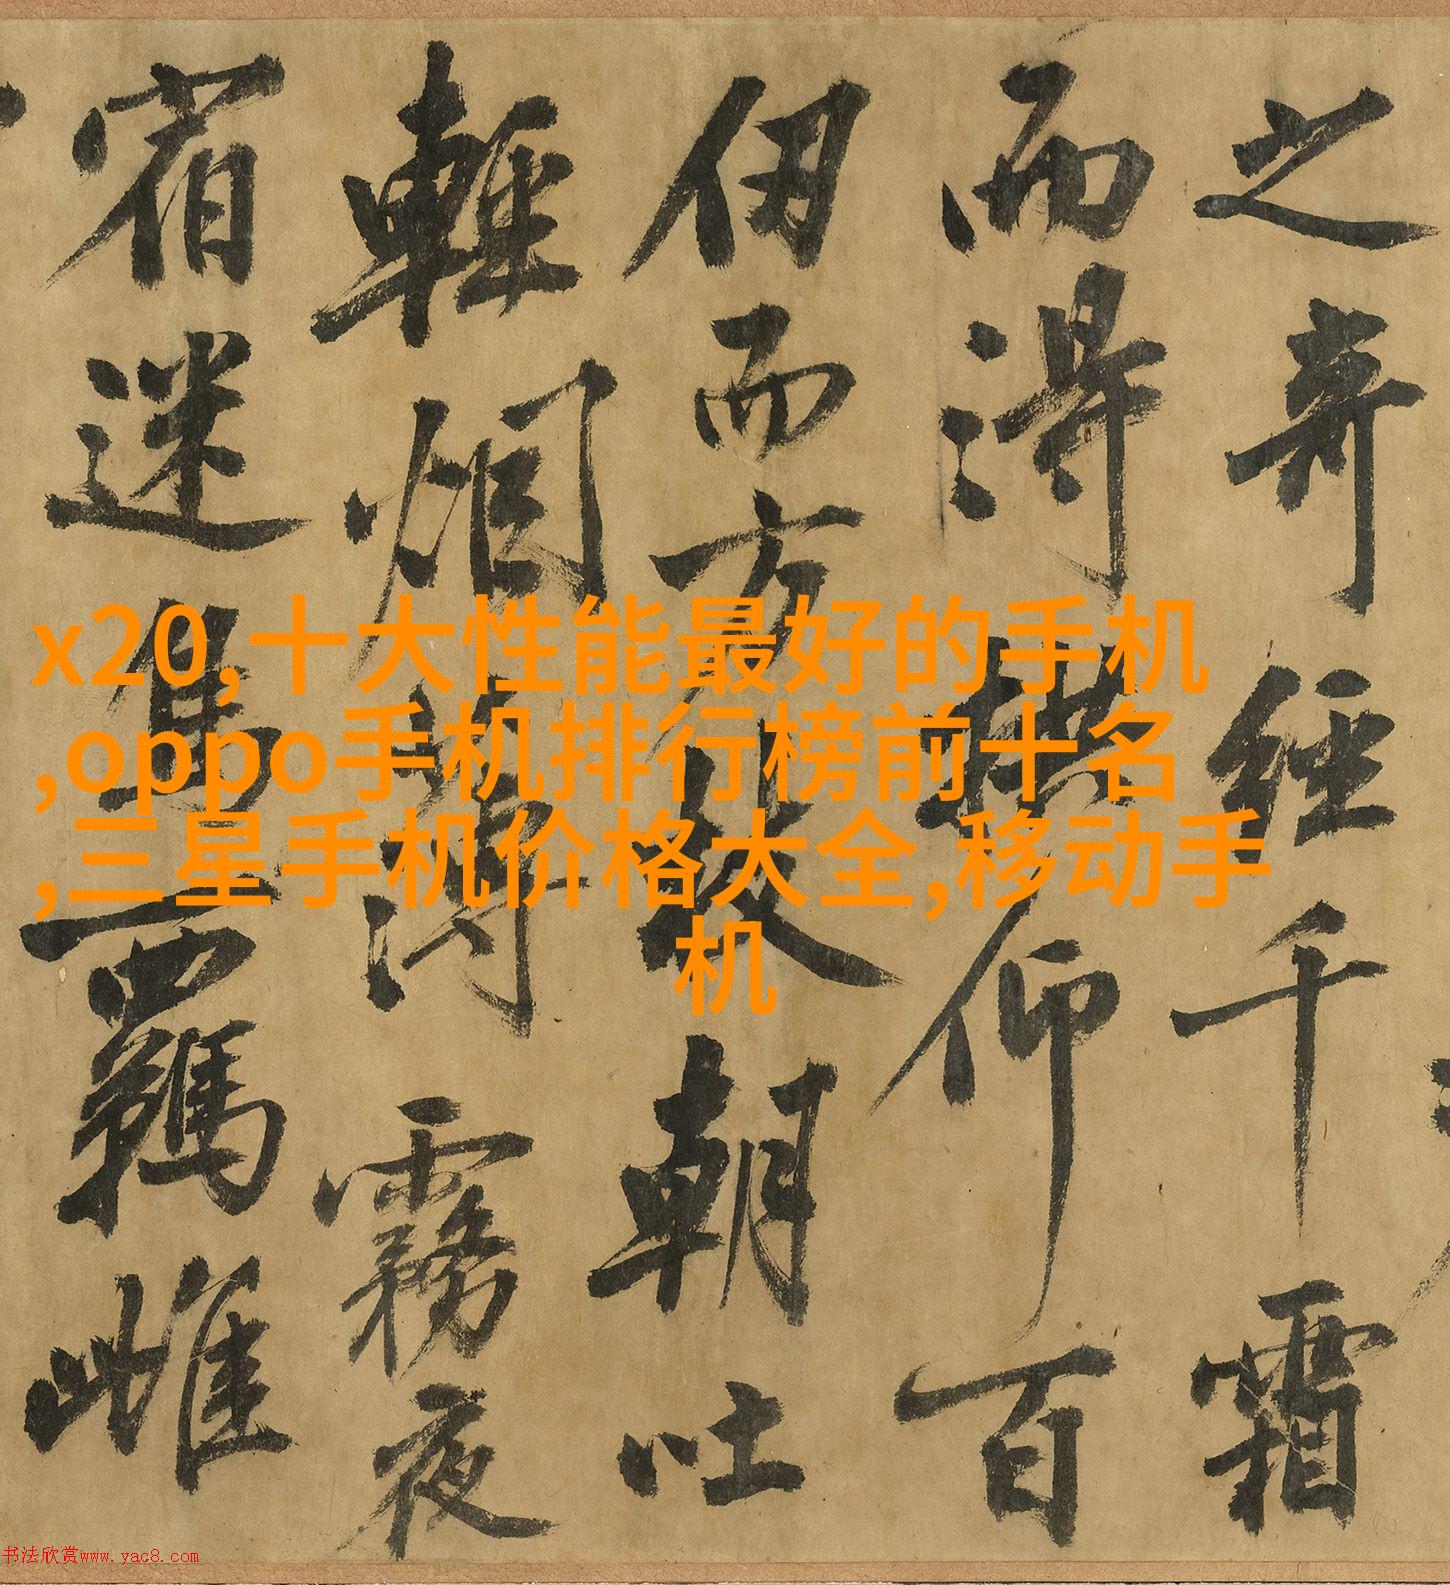 之奇經千霜
而得拱仰百
仭而方枝朝吐
輕烟薄霧夜
宿迷鳥羈雌
x20,十大性能最好的手机
,oppo手机排行榜前十名
,三星手机价格大全,移动手
机
书法欣赏www.yac8.com